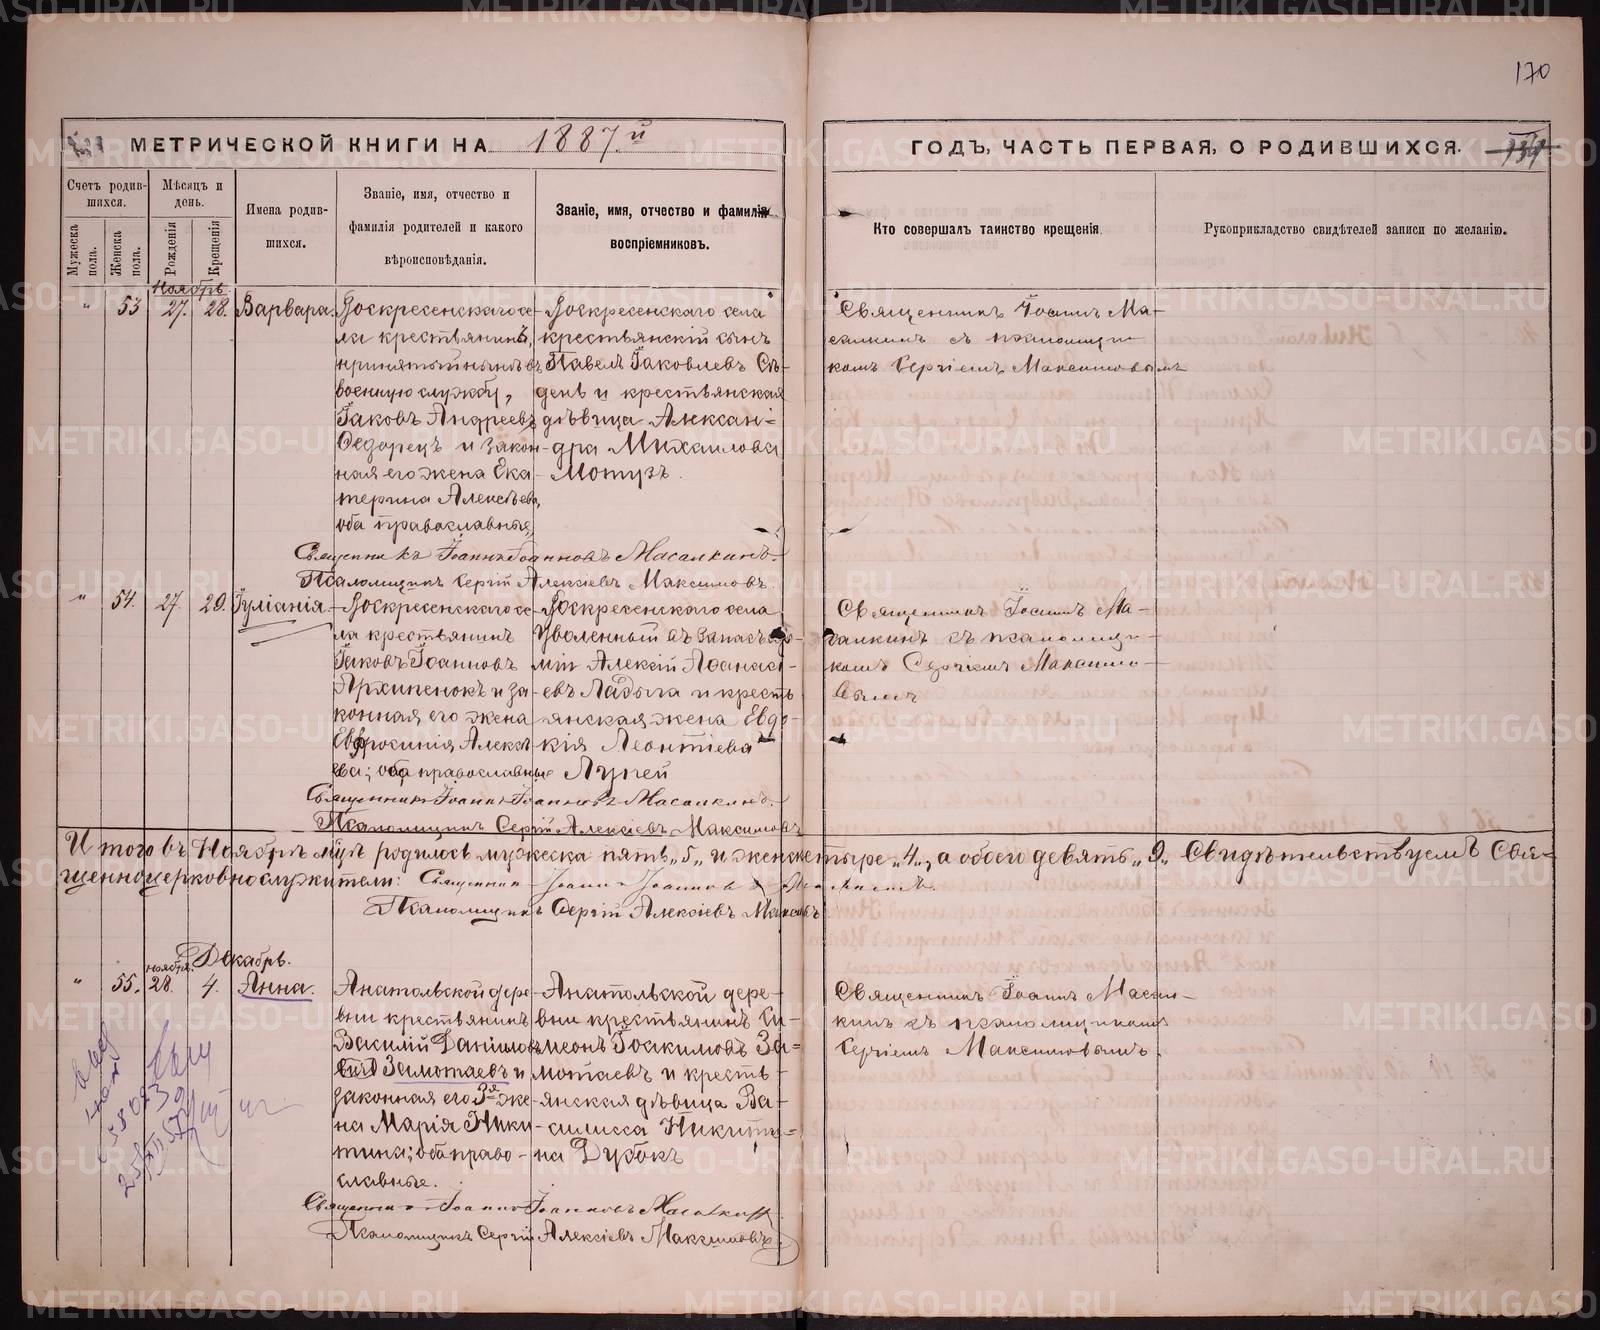 170
МЕТРИЧЕСКОЙ КНИГИ НА 1887й
ГОДЪ, ЧАСТЬ ПЕРВАЯ, О РОДИВШИХСЯ.
Счетъ родив-
шихся.
Мужеска
пола.
Женска
пола.
Мѣсяцъ и
день.
Рожденія
Крещенія
Имена родив-
шихся.
Званіе, имя, отчество и
фамилія родителей и какого
вѣроисповѣданія.
Званіе, имя, отчество и фамилія
воспріемниковъ.
Кто совершалъ таинство крещенія.
Рукоприкладство свидѣтелей записи по желанію.
Ноябрь
„ 53 27. 28. Варвара.
Воскресенскаго се-
ла крестьянинъ,
принятый нынѣ въ
военную службу,
Іаковъ Андреевъ
Ѳедорецъ и закон-
ная его жена Ека-
терина Алексѣева,
оба православные,,
Воскресенскаго села
крестьянскій сынъ
Павелъ Іаковлевъ Сѣ-
день и крестьянская
дѣвица Алексан-
дра Михаилова
Мотузъ.
Священникъ Іоаннъ Ма-
салкинъ съ псаломщи-
комъ Сергіемъ Максимовымъ
Священникъ Іоаннъ Іоанновъ Масалкинъ.
Псаломщикъ Сергій Алексіевъ Максимовъ.
„ 54. 27. 29. Іуліанія
Воскресенскаго се-
ла крестьянинъ
Іаковъ Іоанновъ
Архипенокъ и за-
конная его жена
Евфросинія Алексѣ-
ева; оба православные
Воскресенскаго села
Уволенный въ запасъ ар-
міи Алексій Аѳанасі-
евъ Ладыга и кресть
янская жена Евдо-
кія Леонтіева
Лупей
Священникъ Іоаннъ Ма-
салкинъ съ псаломщи-
комъ Сергіемъ Максимо-
вымъ
Священникъ Іоаннъ Іоанновъ Масалкинъ.
Псаломщикъ Сергій Алексіевъ Максимовъ
Итого въ Ноябрѣ мцѣ родилось мужеска пять „5„ и женск четыре „4„, а обоего девять „9„ Свидѣтельствуемъ Свя-
щенноцерковнослужители: Священникъ Іоаннъ Іоанновъ Масалкинъ.
Псаломщикъ Сергій Алексіевъ Максимовъ
Декабрь.
ноября.
„ 55. 28. 4. Анна.
Анатольской дере-
вни крестьянинъ
Василій Даніиловъ
Замотаевъ и
законная его 3я же-
на Марія Ники
тина; оба право-
славные.
Анатольской дере-
вни крестьянинъ Си-
меонъ Іоакимовъ За-
мотаевъ и кресть-
янская дѣвица Ва-
силисса Никити-
на Дубокъ
Священникъ Іоаннъ Масал-
кинъ съ псаломщикомъ
Сергіемъ Максимовымъ.
Священникъ Іоаннъ Іоанновъ Масалкинъ
Псаломщикъ Сергій Алексіевъ Максимовъ
METRIKI.GASO-URAL.RU